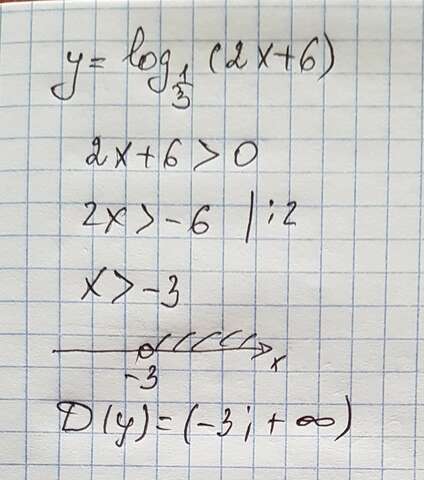 y = log_{1/3} (2x+6)
2x+6 > 0
2x > -6 | :2
x > -3
-3 x
D(y) = (-3; +∞)